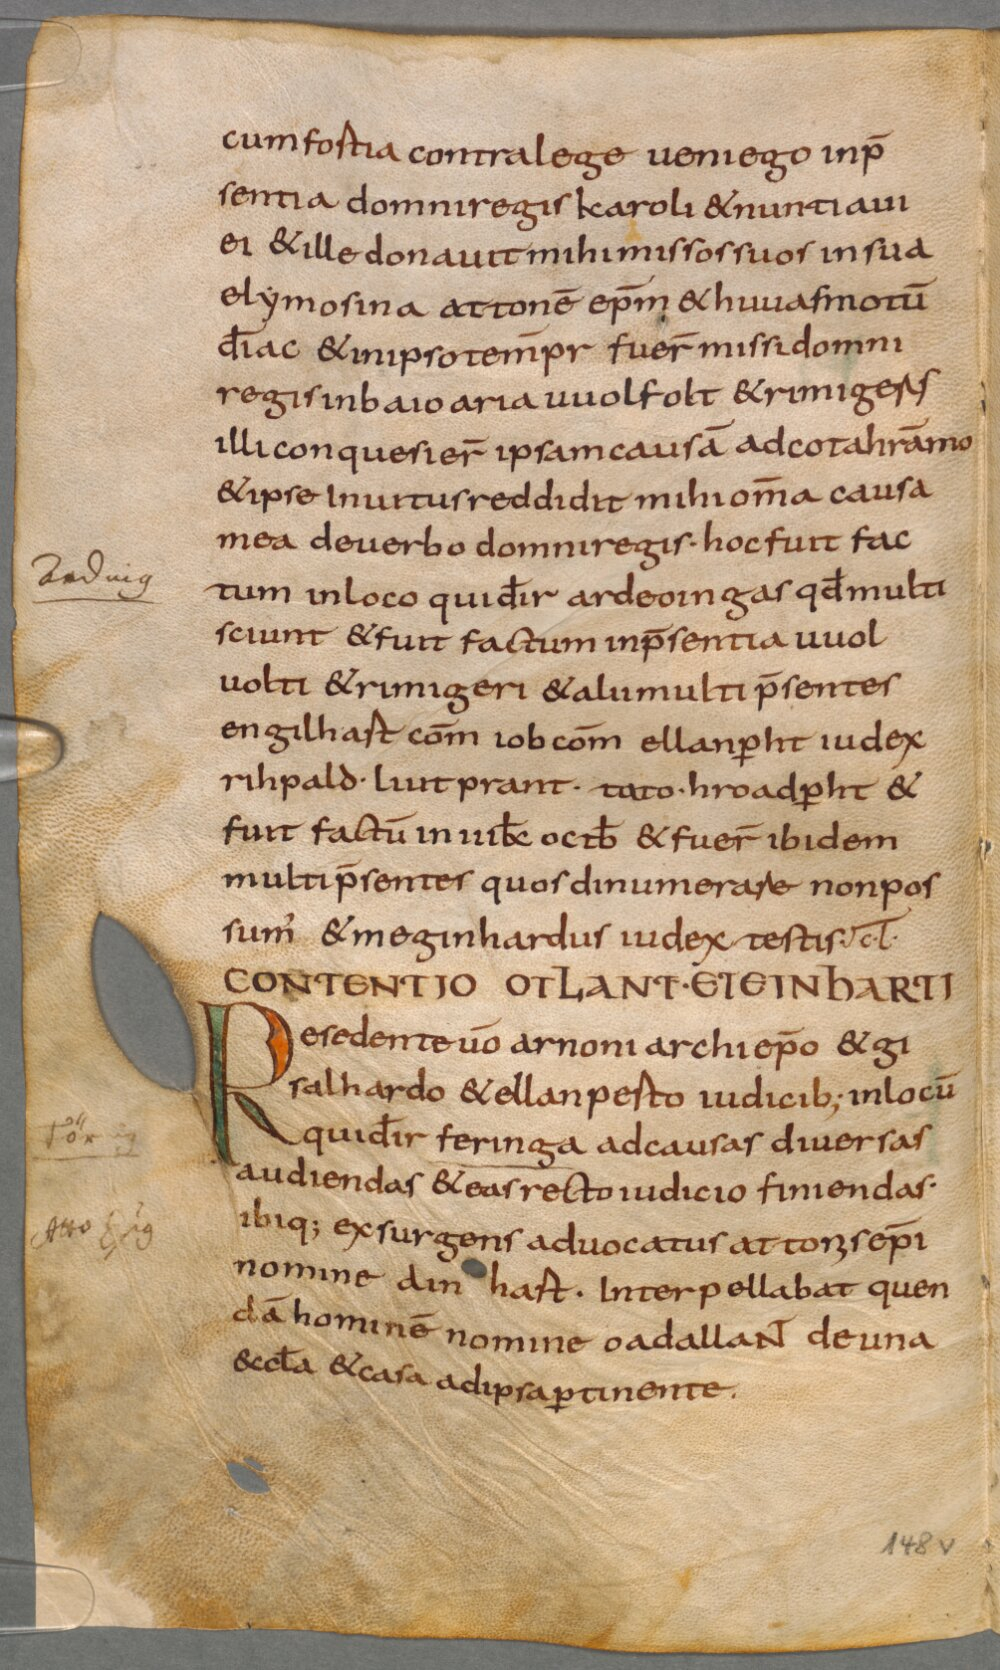 cumfostia contralege ueniego inp̄
sentia domniregis karoli &nuntiaui
ei &ille donauit mihimissossuos insua
elẏmosina attonē ep̄m &huuasmotū
diac̄ &inipsotem̄pr fuer̄ missidomni
regisinbaioaria uuolfolt &rimigeres
illi conquesier̄ ipsamcausā adcotahrām̄o
&ipse Inuitusreddidit mihiom̄a causa
mea deuerbo domniregis· hocfuit fac
tum inloco quid̄ir ardeoingas qd̄multi
sciunt &fuit factum inp̄sentia uuol
uolti &rimigeri &aliimulti p̄sentes
engilhast com̄ iob com̄ ellanp̱ht iudex
rihpald· liutprant· tato· hroadp̱ht &
fuit factū in uik̄ octb̄ &fuer̄ ibidem
multip̄sentes quosdinumerare nonpos
sum̓ &meginhardus iudex testis·
CONTENTIO OTLANT·ETEINHARTI
Resedenteuō arnoni archiep̄o &gi
salhardo &ellanpesto iudicib; inlocū
quid̄ir feringa adcausas diuersas
audiendas &easrectoiudicio finiendas·
ibiq; exsurgens aduocatus attonis ep̄i
nomine din hast· Interpellabat quen
dā hominē nomine oadallaNT deuna
&ccl̄a &casa adipsap̱tinente·
148 v